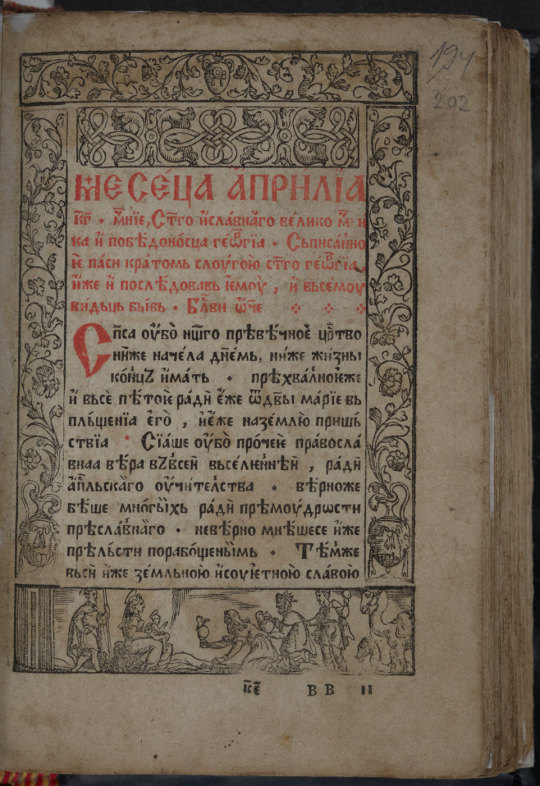 194
202
МЕСЕЦА А҆ПРИЛІА
к҃г · Мч҃нїе, Ст҃го и҆сла́внаго вели́ко мч҃н
ка и҆ побѣдоно́сца геѡ҆́ргїа · Съписан́но
ѥ҆ паси кра́томь слоуго́ю ст҃го геѡ҆́ргїа,
и҆́же и҆ послѣ́довавь ѥ҆моу̀, и҆ вьсемоу̀
видьць бы́вь · Бл҃ви ѿч҃е
Сп҃са оу҆́бо н҃шго прѣвѣ́чноѥ цр҃тво
ни́же наче́ла дн҃ѐмь, ни́же жи́зны
ко́нцꙁ и҆́мать · прѣхва́лноѥ́же
и҆ вьсѐ пѣ́тоѥ ра́ди е҆́же ѿдв҃ы мари́ѥ вь
пль́щенїа е҆го̀, и҆ѥ҆́же назе́млю пришь́
ствїа · Сїа́ше оу҆́бо про́чеѥ правосла́
внаа вѣ́ра вꙁвсе́й вьсе́лѥннѣй, ра́ди
ап҃льскаго оу҆чи́телства · вѣ́рноже
бѣ́ше мно́гы҆хь ра́ди прѣмоу́дрѡсти
прѣсла́внаго · невѣ́рно мнѣ́шесе и҆́же
прѣ́льсти порабо́щены҆мь · Тѣ́мже
вьси̏ и҆́же зе́мльною и҆соуѥ́тною сла́вою
к҃е в в 11